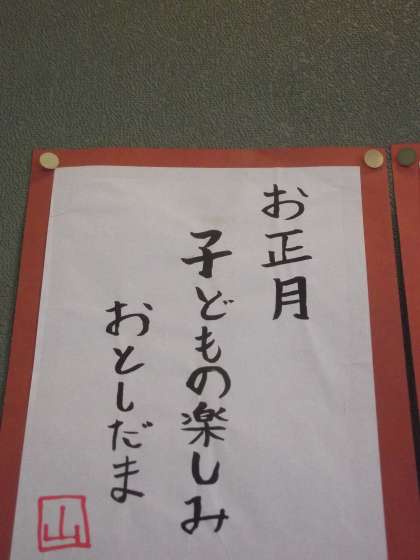 お正月
子どもの楽しみ
おとしだま
山